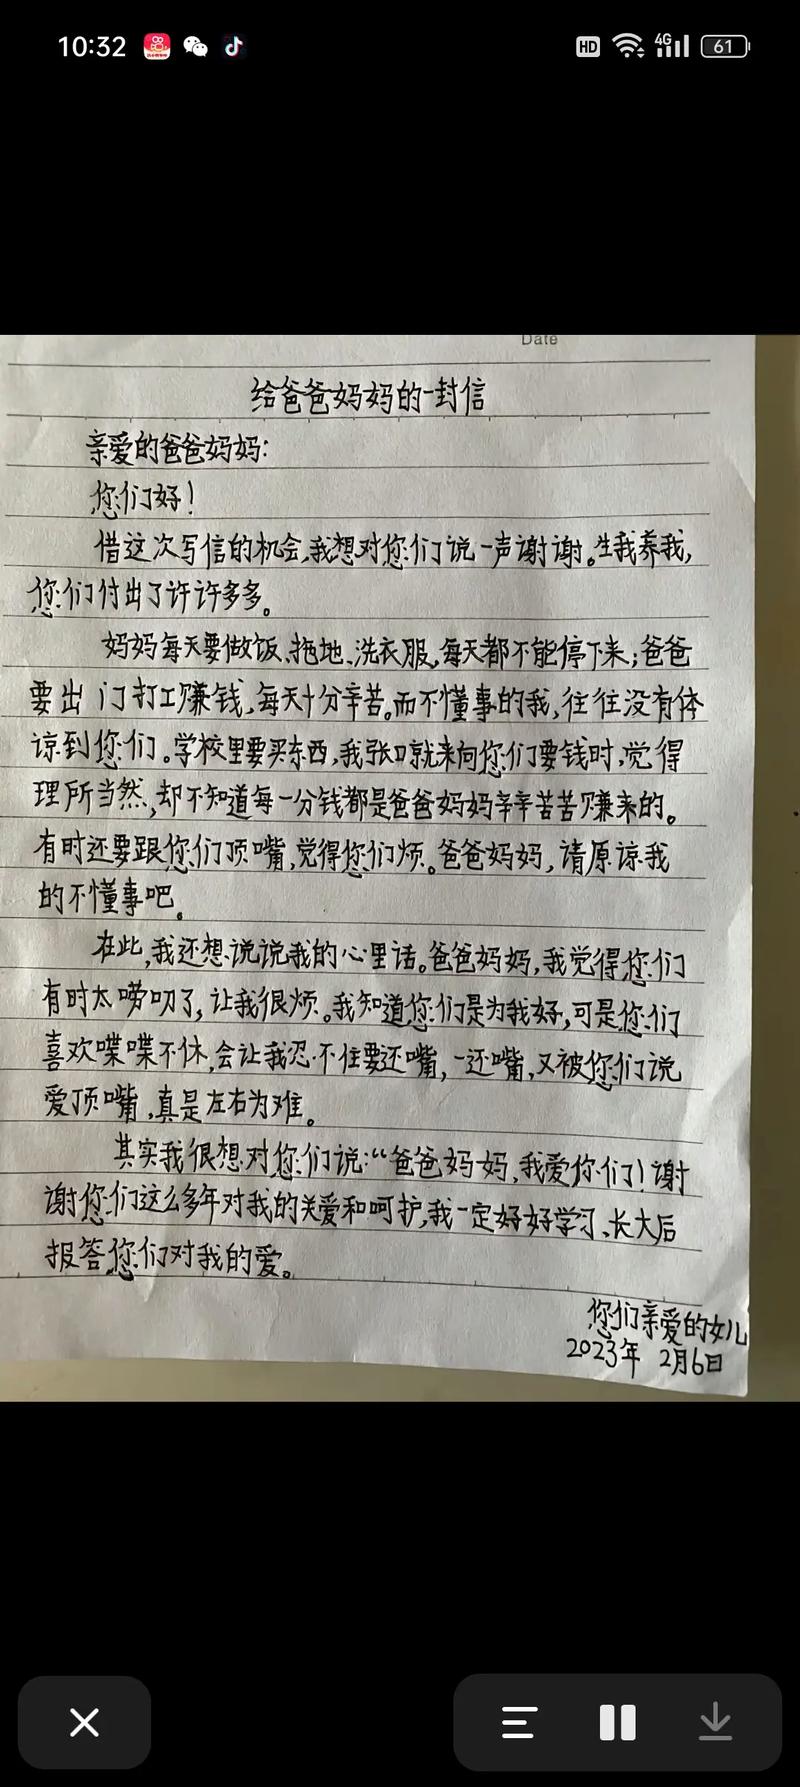 10:32
HD
4G
61
Date
给爸爸妈妈的一封信
亲爱的爸爸妈妈:
您们好!
借这次写信的机会,我想对您们说一声谢谢。生我养我,
您们付出了许许多多。
妈妈每天要做饭、拖地、洗衣服,每天都不能停下来;爸爸
要出门打工赚钱,每天十分辛苦。而不懂事的我,往往没有体
谅到您们。学校里要买东西,我张口就来向您们要钱时,觉得
理所当然,却不知道每一分钱都是爸爸妈妈辛辛苦苦赚来的。
有时还要跟您们顶嘴,觉得您们烦。爸爸妈妈,请原谅我
的不懂事吧。
在此,我还想说说我的心里话。爸爸妈妈,我觉得您们
有时太唠叨了,让我很烦。我知道您们是为我好,可是您们
喜欢喋喋不休,会让我忍不住要还嘴,一还嘴,又被您们说
爱顶嘴,真是左右为难。
其实我很想对您们说:“爸爸妈妈,我爱你们!谢
谢您们这么多年对我的关爱和呵护,我一定好好学习、长大后
报答您们对我的爱。
您们亲爱的女儿
2023年 2月6日